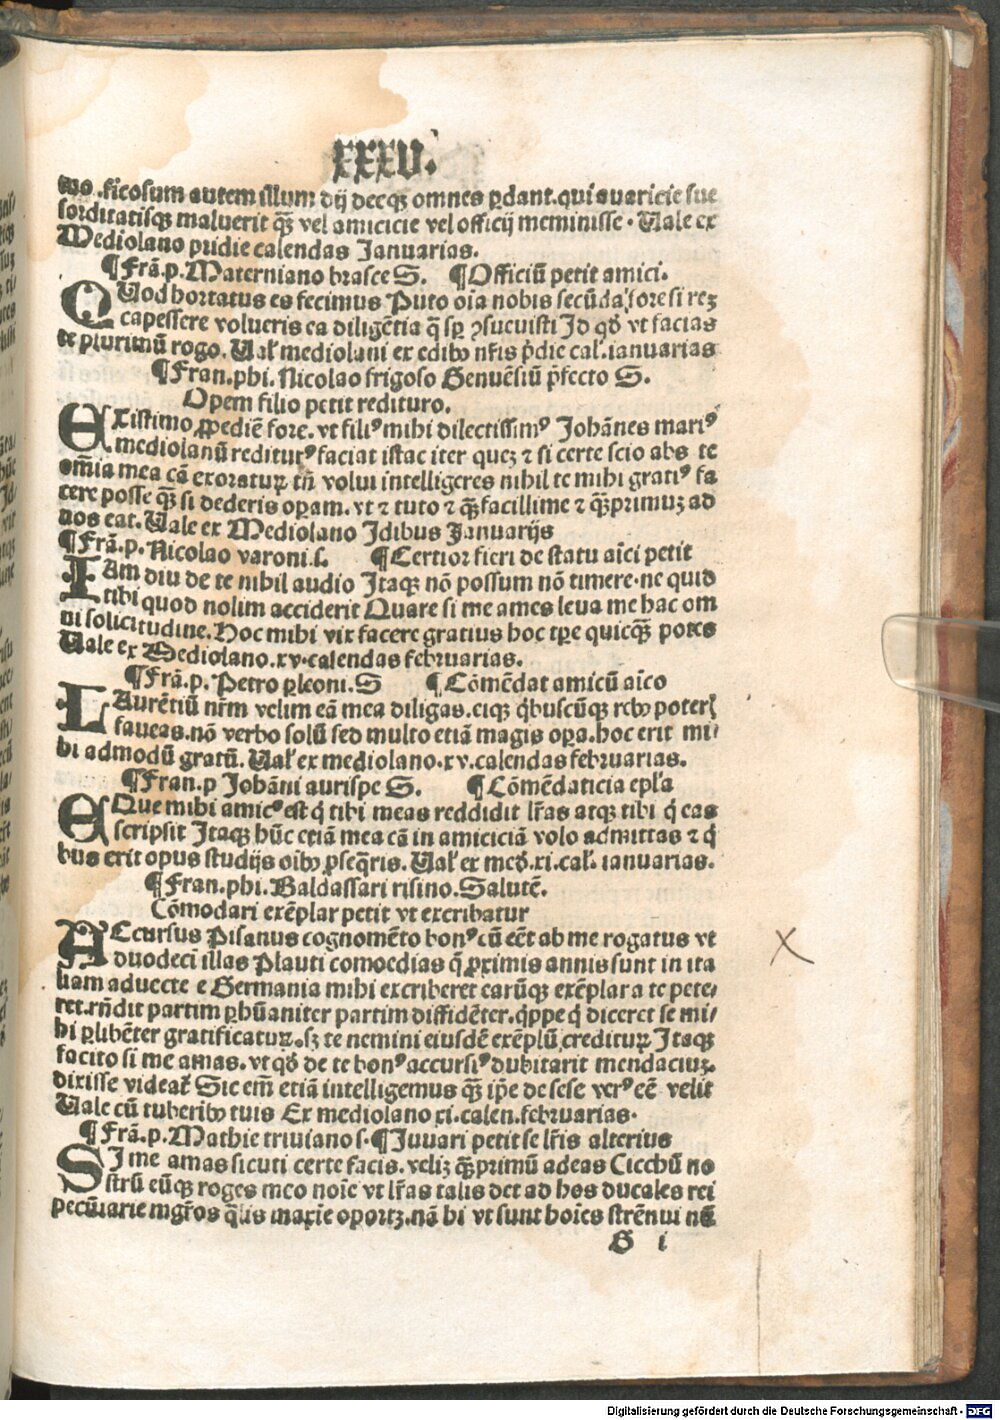 XXXV.
tuo. ficosum autem illum dij decq; omnes ꝑdant. qui auaricie sue
sorditatisq; maluerit q̃ꝫ vel amicicie vel officij meminisse. Uale ex
Mediolano pridie calendas Januarias.
¶Frã.p. Materniano brasce S. ¶Officiũ petit amici.
QUod hortatus es fecimus Puto oĩa nobis secũda fore si reꝫ
capessere volueris ea diligẽtia q̃ sꝑ ꝯsueuisti Id qđ vt facias
te plurimũ rogo. Ual' mediolani ex edibꝰ nr̃is p̃die cal'. ianuarias
¶Fran.phi. Nicolao frigoso Genuẽsiũ p̃fecto S.
Opem filio petit redituro.
EXistimo ꝓpediẽ fore. vt filiꝰ mihi dilectissimꝰ Johãnes mariꝰ
mediolanũ rediturꝰ faciat istac iter queꝫ ⁊ si certe scio abs te
om̃ia mea cã exoraturꝫ tñ volui intelligeres nihil te mihi gratiꝰ fa
cere posse q̃ꝫ si dederis oꝑam. vt ⁊ tuto ⁊ q̃ꝫ facillime ⁊ q̃ꝫprimuꝫ ad
nos eat. Uale ex Mediolano Idibus Januarijs
¶Frã.p. Nicolao varoni.s. ¶Certior fieri de statu aĩci petit
IAm diu de te nihil audio Itaq; nõ possum nõ timere. ne quid
tibi quod nolim acciderit Quare si me ames leua me hac om
ni solicitudine. Hoc mihi vix facere gratius hoc tꝑe quicq̃ꝫ potes
Uale ex Mediolano. xv. calendas februarias.
¶Frã.p. Petro ꝑleoni. S ¶Cõmẽdat amicũ aĩco
LAurẽtiũ nr̃m velim eã mea diligas. eiq; q̃buscũq; rebꝰ poter'
faueas. nõ verbo solũ sed multo etiã magis oꝑa. hoc erit mi/
hi admodũ gratũ. Ual' ex mediolano. xv. calendas februarias.
¶Fran.p Johãni aurispe S. ¶Cõmẽdaticia epl'a
EQue mihi amicꝰ est q̇ tibi meas reddidit lr̃as atq; tibi q̇ eas
scripsit Itaq; hũc etiã mea cã in amiciciã volo admittas ⁊ q̇
bus erit opus studijs oĩbꝰ ꝓseq̃ris. Ual' ex međ. xi. cal'. ianuarias.
¶Fran.phi. Baldassari risino. Salutẽ.
Cõmodari exẽplar petit vt excribatur
ACcursus Pisanus cognomẽto bonꝰ cũ eẽt ab me rogatus vt
duodeci illas Plauti comoedias q̃ ꝓximis annis sunt in ita
liam aduecte e Germania mihi excriberet earũq; exẽplar a te pete/
ret. rñdit partim ꝑhũaniter partim diffidẽter. q̃ppe q̇ diceret se mi/
hi ꝑlibẽter gratificaturꝫ. sꝫ te nemini eiusdẽ exẽplũ crediturꝫ Itaq;
facito si me amas. vt qđ de te bonꝰ accursiꝰ dubitarit mendaciuꝫ.
dixisse videat' Sic em̃ etiã intelligemus q̃ꝫ ip̃e de sese verꝰ eẽ velit
Uale cũ tuberibꝰ tuis Ex mediolano xi. calen. februarias.
¶Frã.p. Mathie triuiano s. ¶Juuari petit se lr̃is alterius
SI me amas sicuti certe facis. veliꝫ q̃ꝫprimũ adeas Cicchũ no
strũ eũq; roges meo noĩe vt lr̃as talis det ad hos ducales rei
pecũiarie mgr̃os q̃lis maxĩe oportꝫ. nã hi vt sunt hoĩes strẽnui nẽ
G i
X
Digitalisierung gefördert durch die Deutsche Forschungsgemeinschaft - DFG